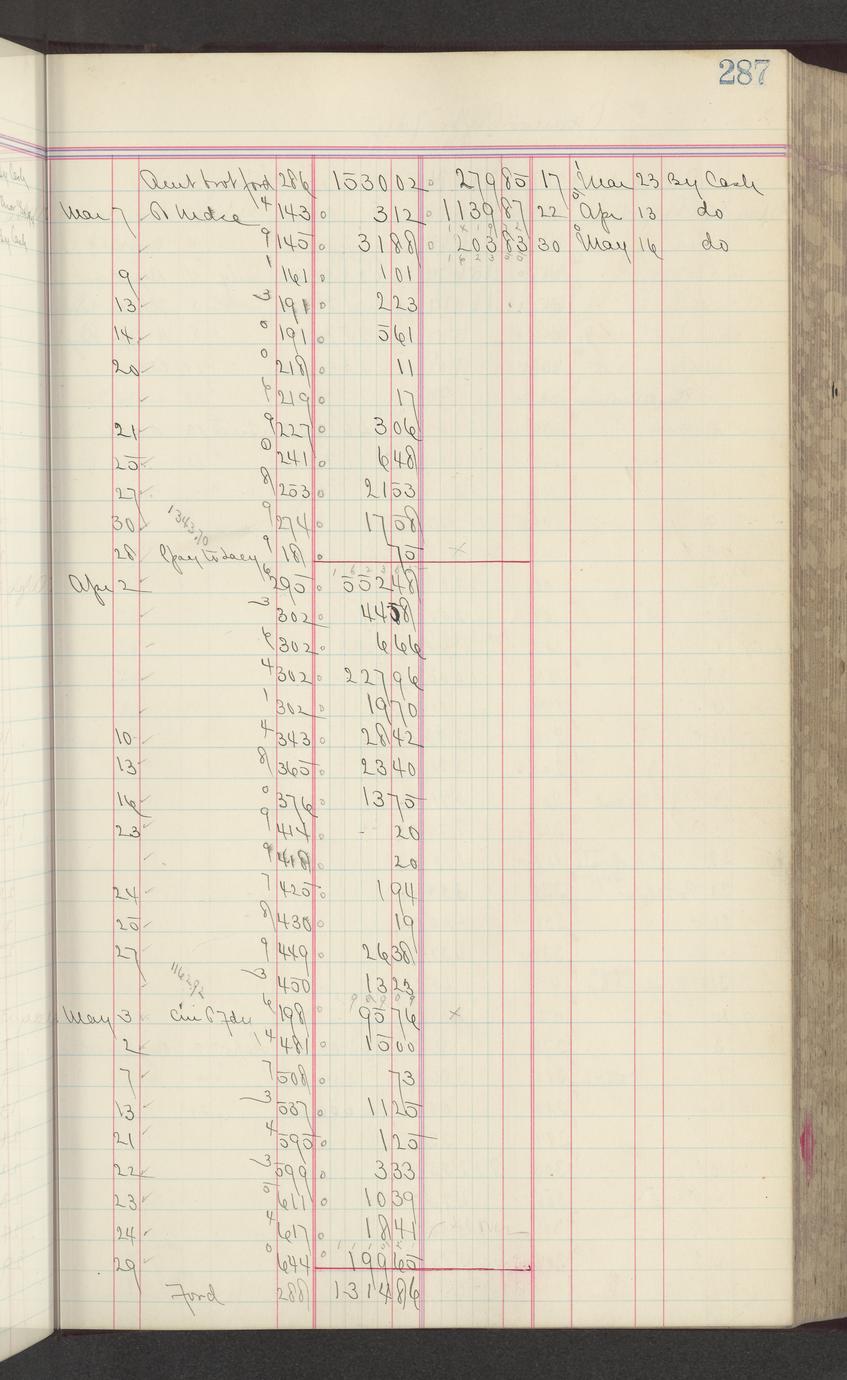 287
Amt brot ford 286 1530 02 279 85 17 Mar 23 By Cash
Mar 7 To Mdse 4 143 3 12 1139 87 22 Apr 13 do
9 145 31 88 203 83 30 May 16 do
9 1 161 1 01
13 3 191 2 23
14 0 191 5 61
20 0 218 11
6 219 17
21 9 227 3 06
25 0 241 6 48
27 8 253 21 53
30 134370 9 274 17 58
28 9 181 75
Apr 2 6 295 552 48
3 302 44 58
6 302 6 66
4 302 227 96
1 302 19 70
10 4 343 28 42
13 8 365 23 40
16 0 376 13 75
23 9 414 20
9 418 20
24 7 425 1 94
25 8 430 19
27 9 449 26 38
116292 3 450 13 23
May 3 6 198 95 76
2 4 481 15 00
7 7 508 73
13 3 537 11 25
21 4 595 1 25
22 3 599 3 33
23 5 611 10 39
24 4 617 18 41
29 0 644 199 65
Ford 288 1314 86